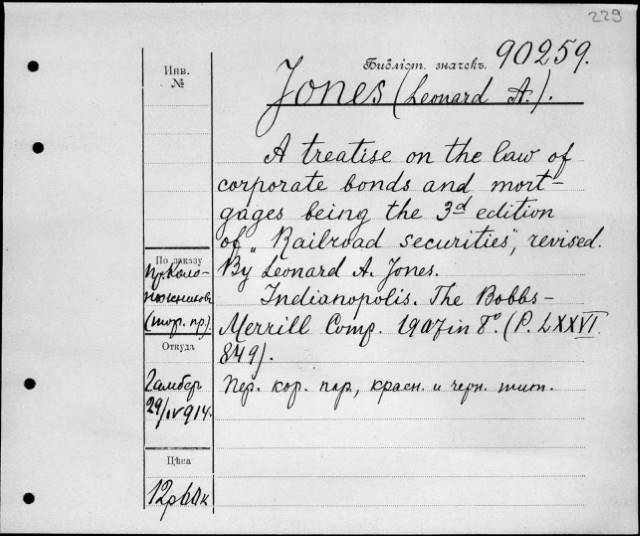 229
Инв.
№
Библіот. значекъ 90259.
Jones (Leonard A.).
A treatise on the law of
corporate bonds and mort-
gages being the 3d edition
of „Railroad securities", revised.
By Leonard A. Jones.
Indianopolis. The Bobbs-
Merrill Comp. 1907 in 8°. (P. LXXVI.
849).
Пер. кор. пар, красн. и черн. тит.
По заказу
пр. Коло-
(тор. пр.)
Откуда
Гамбер
29/IV 914.
Цѣна
12р60к